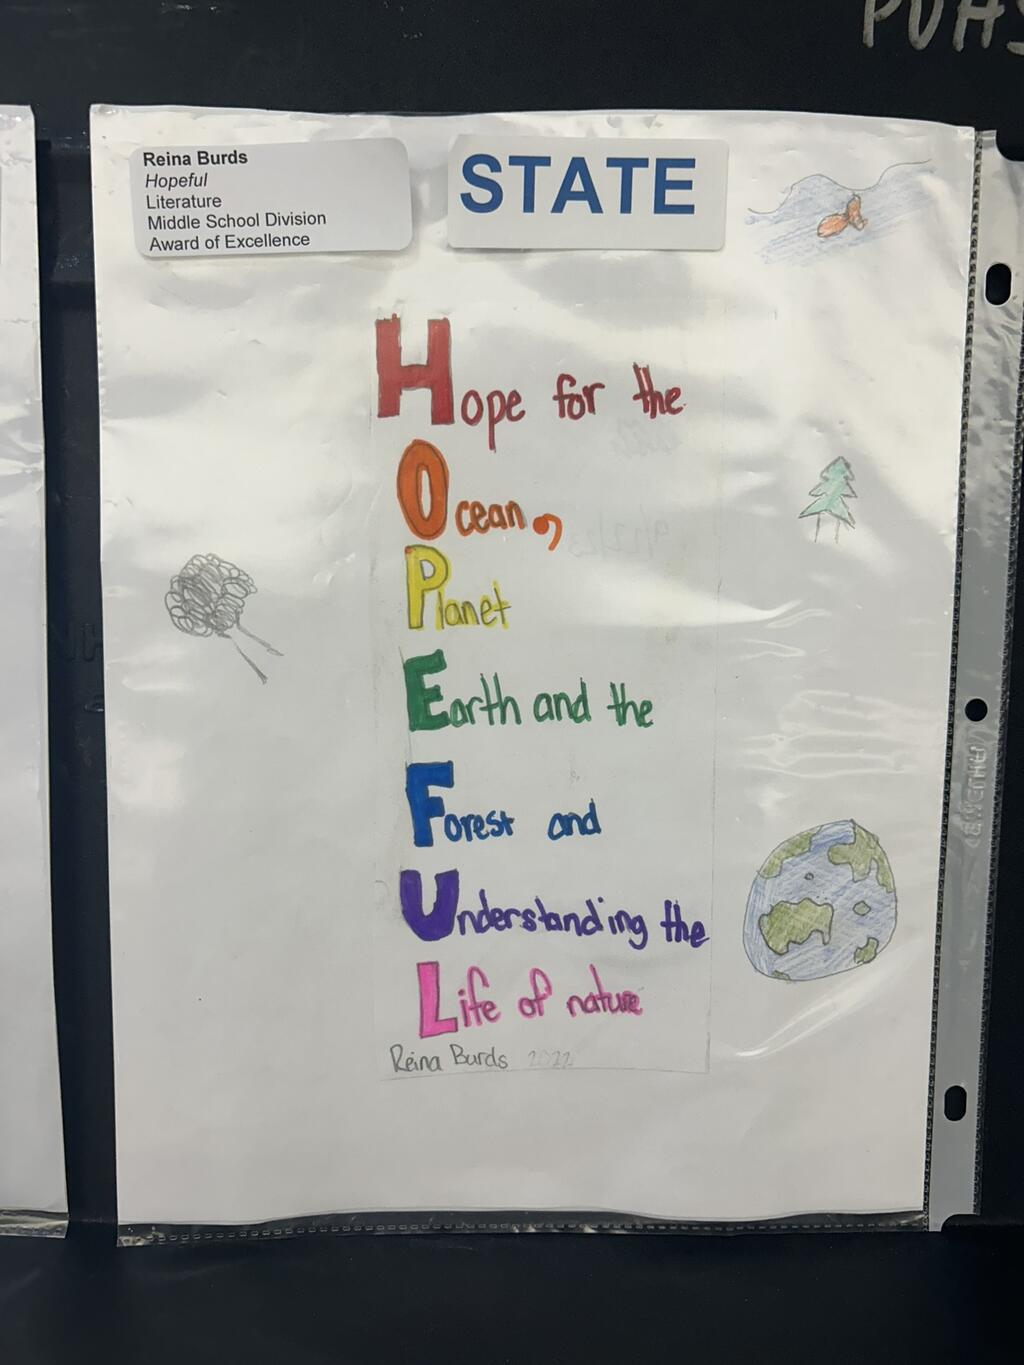 PVAS
Reina Burds
Hopeful
Literature
Middle School Division
Award of Excellence
STATE
Hope for the
Ocean,
Planet
Earth and the
Forest and
Understanding the
Life of nature
Reina Burds 2022